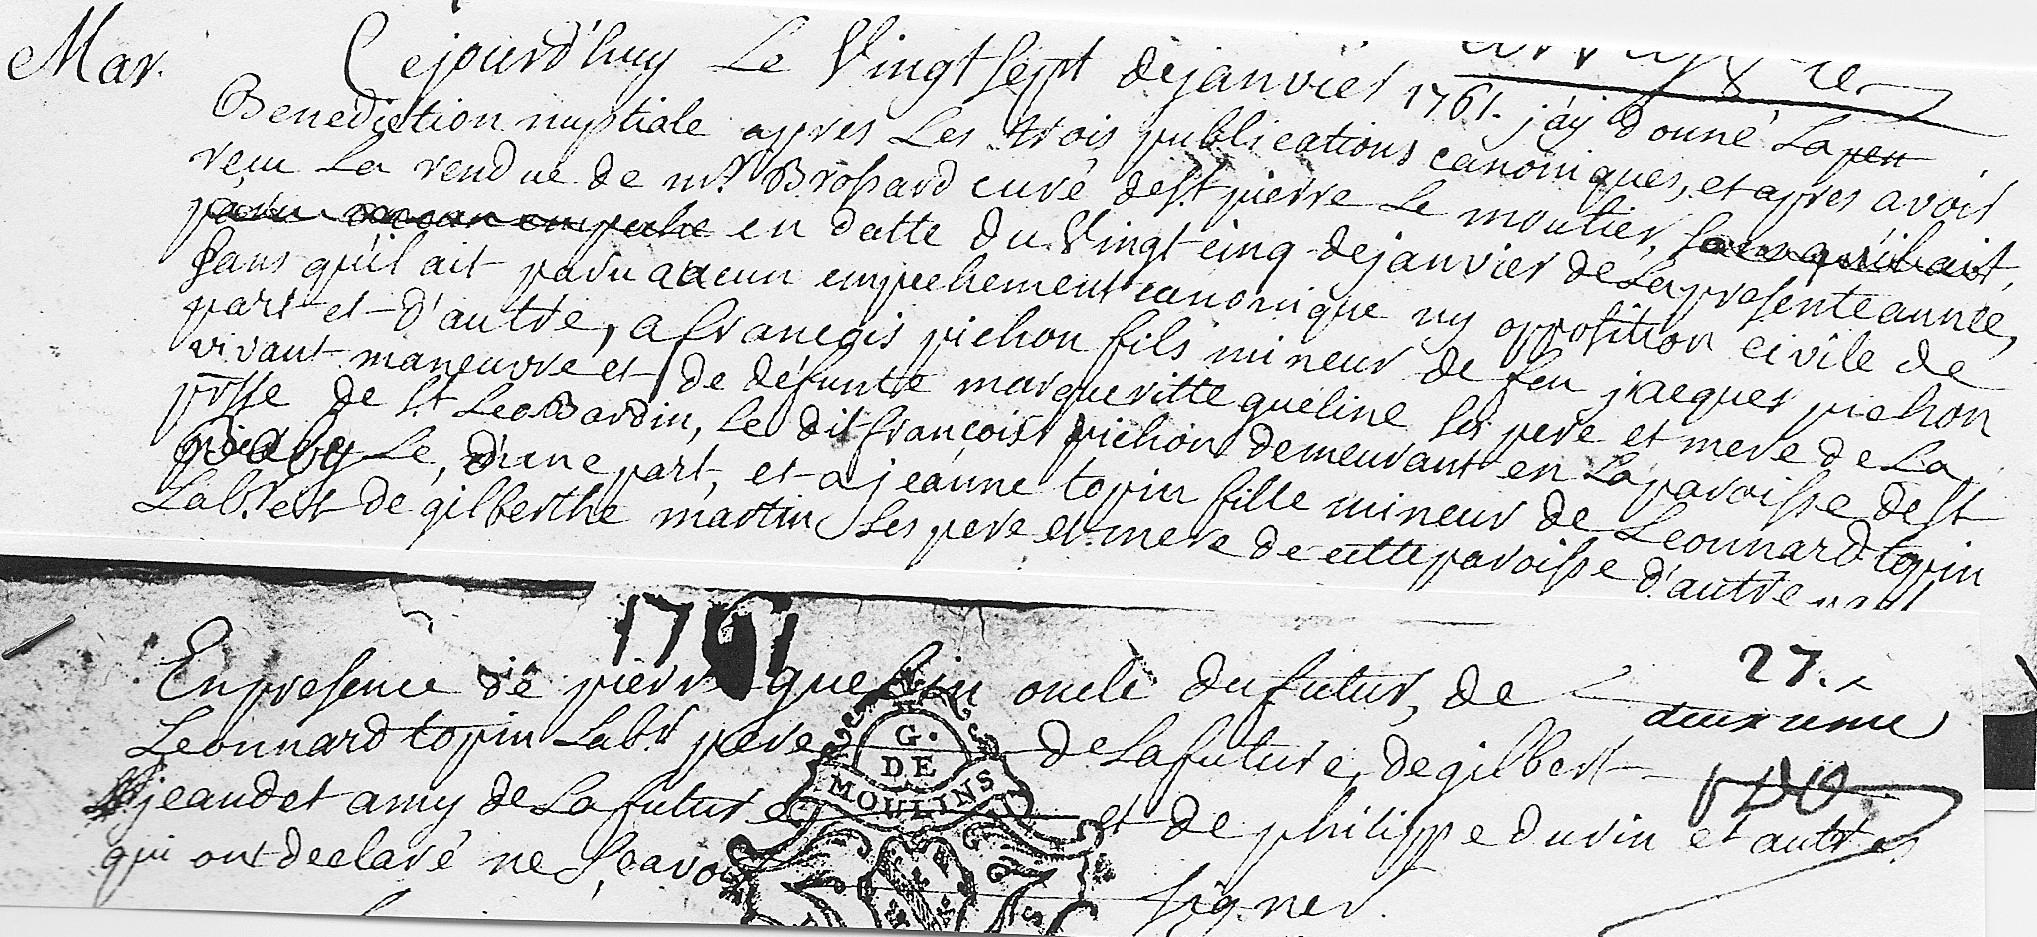 Mar. Cejourd'huy Le Vingt Sept de janvier 1761. j'ay donné La
Benediction nuptiale appres Les trois publications canoniques, et appres avoir
reçu La rendue de mr. Brossard curé de St pierre Le moutier, sans qu'il ait
paru aucun empeche en datte du Vingt cinq de janvier de La presente année,
Sans qu'il ait paru aucun empechement canonique ny opposition civile de
part et d'autre, a francois pichon fils mineur de feu jacques pichon
vivant maneuvre et de défunte margueritte queline Ses pere et mere de La
prsse de St Leobardin, Le dit françois pichon demeurant en La paroisse de St
Le, d'une part, et a jeanne topin fille mineur de Leonnard topin
Labr. et de gilberthe martin Ses pere et mere de cette paroisse d'autre part
1761
27.
En presence de pierre quelin oncle du futur, de
deuxieme
Leonnard topin Labr pere de La future, de gilbert
G.
DE
MOULINS
jeandet amy de La future et de philippe durin et autres
qui ont declaré ne Sçavoir Signer.